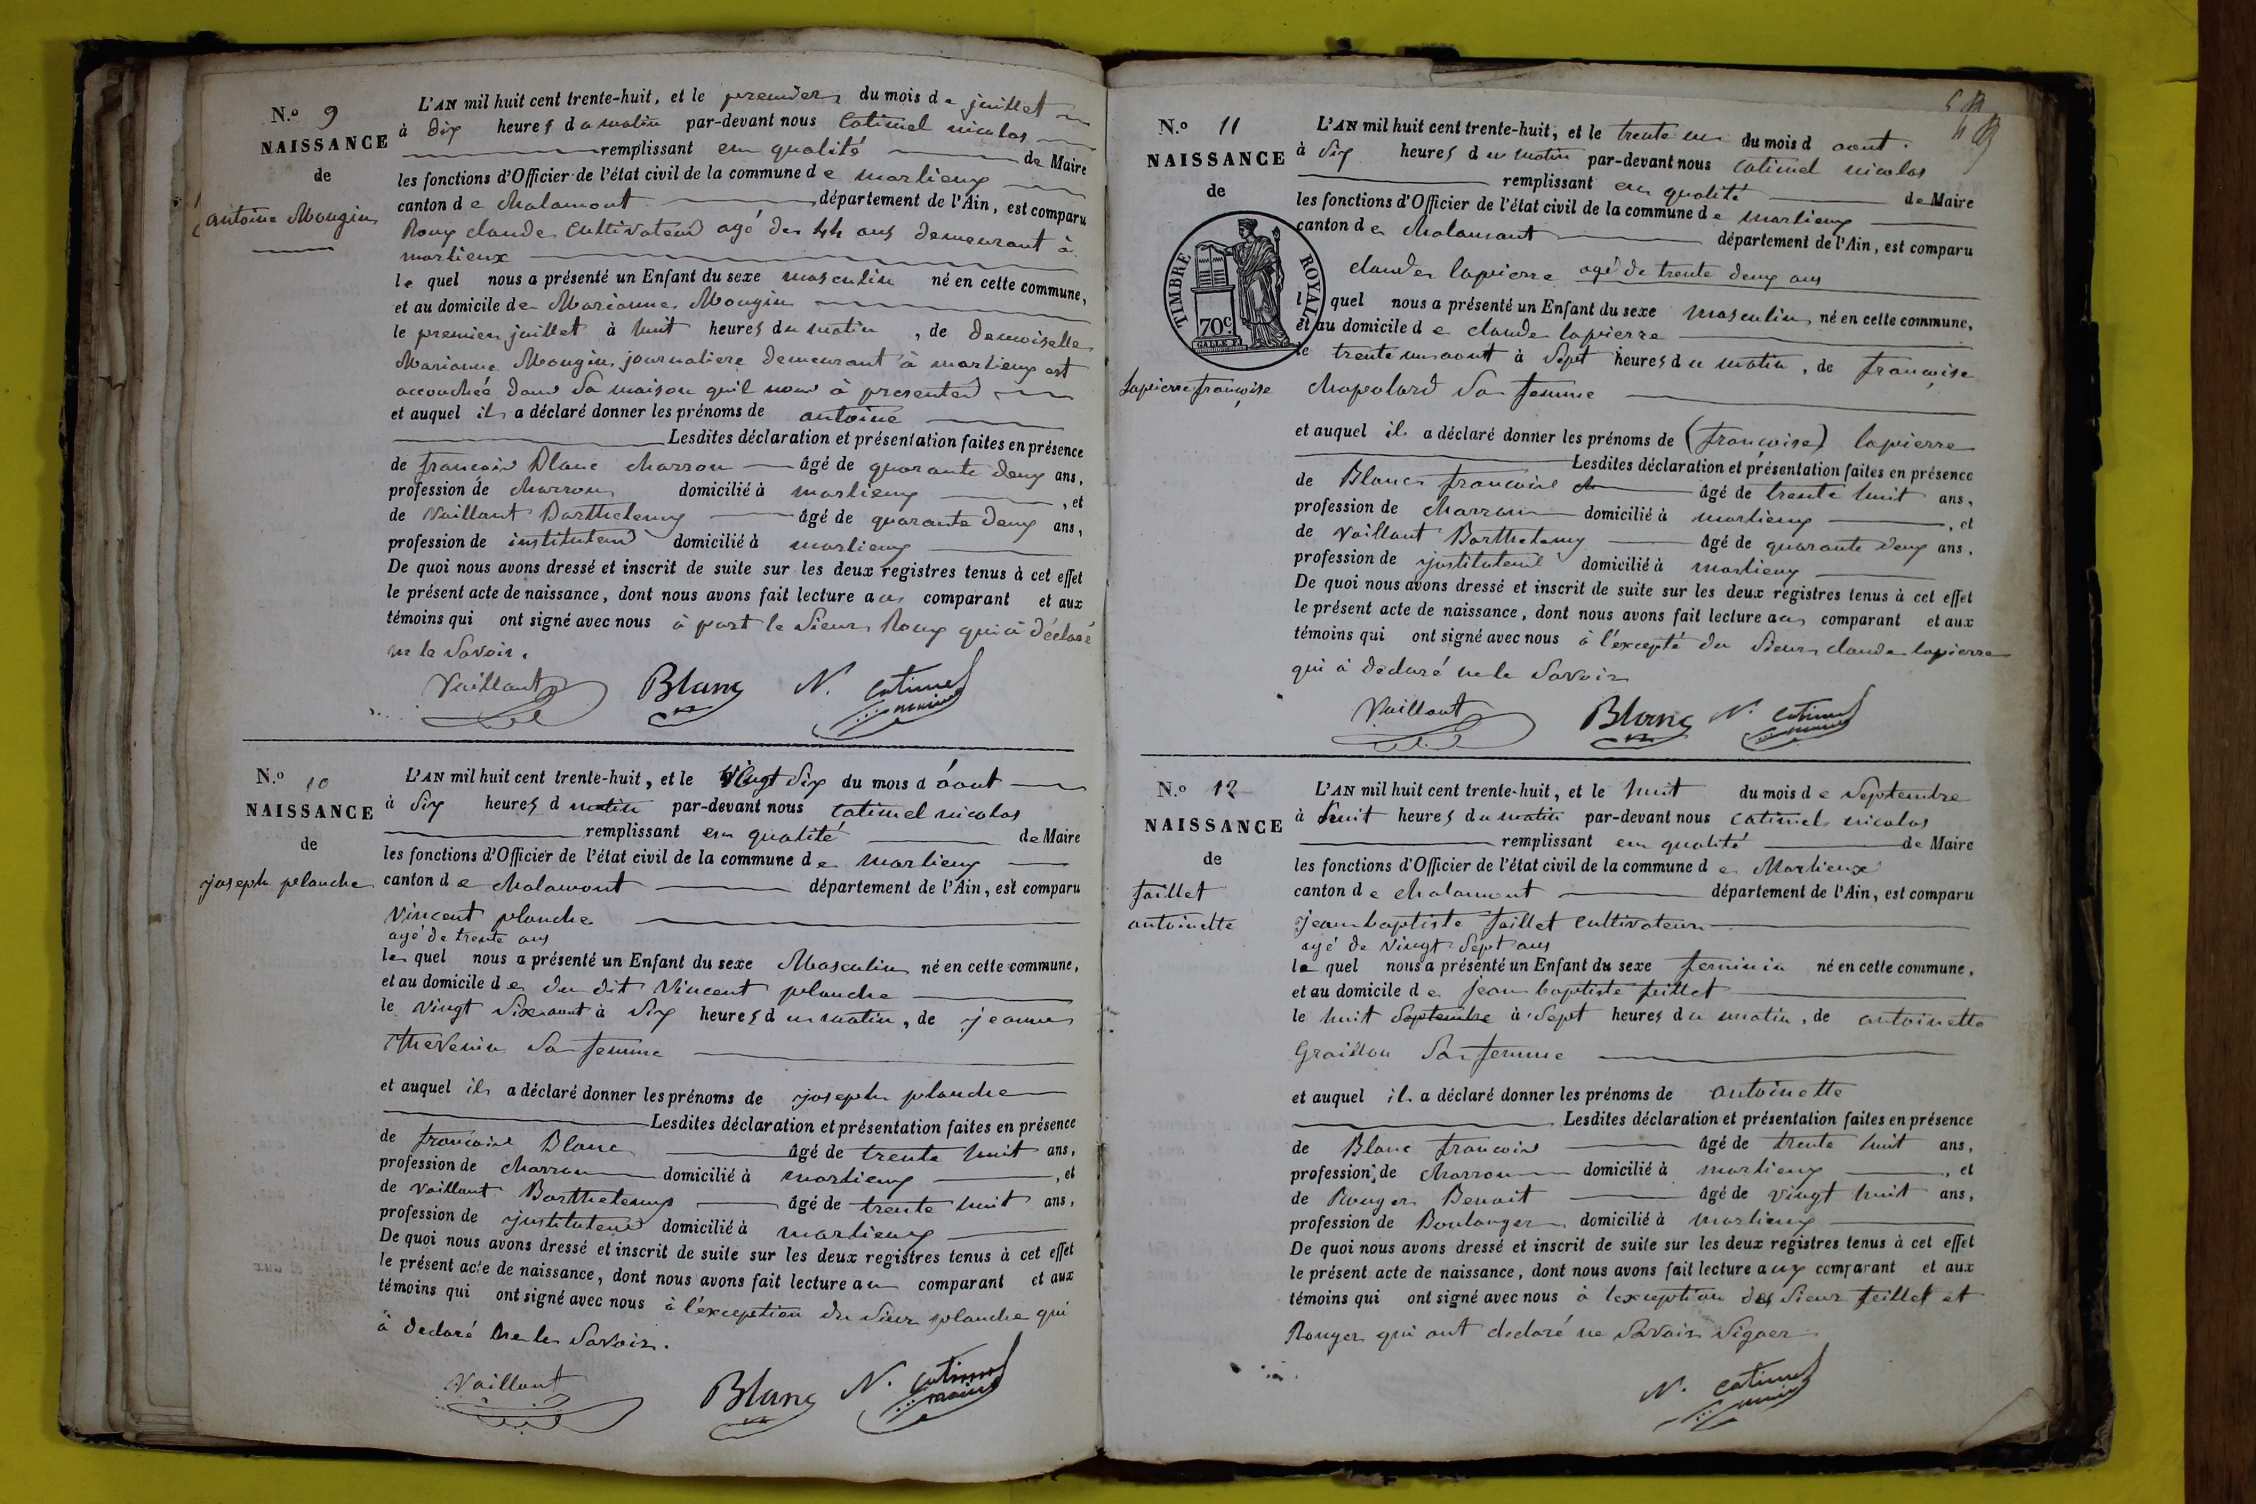 N.º 9
NAISSANCE
de
antoine Mougin
L'AN mil huit cent trente-huit, et le premier du mois de juillet
à dix heures du matin par-devant nous Catimel nicolas
remplissant en qualité de Maire
les fonctions d'Officier de l'état civil de la commune de marlieux
canton de Chalamont département de l'Ain, est comparu
Roux claude Cultivateur agé de 44 ans demeurant à
marlieux
le quel nous a présenté un Enfant du sexe masculin né en cette commune,
et au domicile de Marianne Mougin
le premier juillet à huit heures du matin, de demoiselle
Marianne Mougin journaliere demeurant à marlieux est
accouchée dans sa maison qu'il nous à presenter
et auquel il a déclaré donner les prénoms de antoine
Lesdites déclaration et présentation faites en présence
de françois Blanc charron âgé de quarante deux ans,
profession de charron domicilié à marlieux, et
de Vaillant Barthelemy âgé de quarante deux ans,
profession de instituteur domicilié à marlieux
De quoi nous avons dressé et inscrit de suite sur les deux registres tenus à cet effet
le présent acte de naissance, dont nous avons fait lecture au comparant et aux
témoins qui ont signé avec nous à part le Sieur Roux qui à déclaré
ne le Savoir.
Vaillant Blanc N. Catimel
maire
N.º 10
NAISSANCE
de
joseph planche
L'AN mil huit cent trente-huit, et le Vingt Six du mois d'aout
à dix heures d matin par-devant nous Catimel nicolas
remplissant en qualité de Maire
les fonctions d'Officier de l'état civil de la commune de marlieux
canton de Chalamont département de l'Ain, est comparu
Vincent planche
agé de trente ans
le quel nous a présenté un Enfant du sexe Masculin né en cette commune,
et au domicile de du dit Vincent planche
le Vingt Six aout à Six heures du matin, de jeanne
Thevenin Sa femme
et auquel il a déclaré donner les prénoms de joseph planche
Lesdites déclaration et présentation faites en présence
de françois Blanc âgé de trente huit ans,
profession de charron domicilié à marlieux, et
de Vaillant Barthelemy âgé de trente huit ans,
profession de jnstituteur domicilié à marlieux
De quoi nous avons dressé et inscrit de suite sur les deux registres tenus à cet effet
le présent acte de naissance, dont nous avons fait lecture au comparant et aux
témoins qui ont signé avec nous à l'exception du Sieur planche qui
à declaré ne le Savoir.
Vaillant Blanc N. Catimel
maire
N.º 11
NAISSANCE
de
TIMBRE ROYAL
70 c.
lapierre françoise
L'AN mil huit cent trente-huit, et le trente un du mois d aout.
à dix heures du matin par-devant nous Catimel nicolas
remplissant en qualité de Maire
les fonctions d'Officier de l'état civil de la commune de marlieux
canton de Chalamont département de l'Ain, est comparu
claude lapierre agé de trente deux ans
l quel nous a présenté un Enfant du sexe masculin né en cette commune,
et au domicile de claude lapierre
le trente un aout à Sept heures du matin, de françoise
Chapolard Sa femme
et auquel il a déclaré donner les prénoms de (françoise) lapierre
Lesdites déclaration et présentation faites en présence
de Blanc françois âgé de trente huit ans,
profession de charron domicilié à marlieux, et
de Vaillant Barthelemy âgé de quarante deux ans,
profession de jnstituteur domicilié à marlieux
De quoi nous avons dressé et inscrit de suite sur les deux registres tenus à cet effet
le présent acte de naissance, dont nous avons fait lecture au comparant et aux
témoins qui ont signé avec nous à l'excepté du Sieur claude lapierre
qui à déclaré ne le Savoir
Vaillant Blanc N. Catimel
maire
N.º 12
NAISSANCE
de
faillet
antoinette
L'AN mil huit cent trente-huit, et le huit du mois de Septembre
à huit heures du matin par-devant nous Catimel nicolas
remplissant en qualité de Maire
les fonctions d'Officier de l'état civil de la commune de Marlieux
canton de Chalamont département de l'Ain, est comparu
jean baptiste faillet Cultivateur
agé de Vingt Sept ans
le quel nous a présenté un Enfant du sexe feminin né en cette commune,
et au domicile de jean baptiste feillet
le huit Septembre à Sept heures du matin, de antoinette
Graillon Sa femme
et auquel il a déclaré donner les prénoms de antoinette
Lesdites déclaration et présentation faites en présence
de Blanc françois âgé de trente huit ans,
profession de charron domicilié à marlieux, et
de Rouger Benoit âgé de vingt huit ans,
profession de Boulanger domicilié à marlieux
De quoi nous avons dressé et inscrit de suite sur les deux registres tenus à cet effet
le présent acte de naissance, dont nous avons fait lecture aux comparant et aux
témoins qui ont signé avec nous à l'exception des Sieur feillet et
Rouger qui ont declaré ne Savoir Signer
N. Catimel
maire